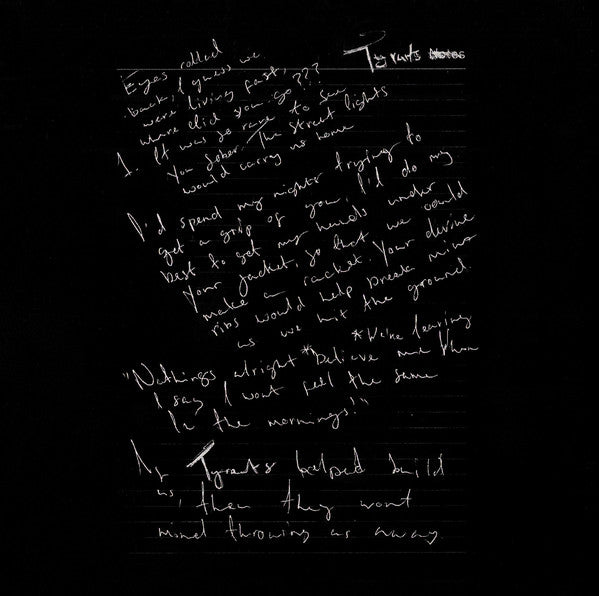 Tyrants Notes
Eyes rolled
back, I guess we
were living fast,
where did you go???
1. It was so rare to see
you sober. The street lights
would carry us home
I'd spend my nights trying to
get a grip of you, I'd do my
best to get my hands under
your jacket, so that we could
make a racket. Your divine
ribs would help break mine
as we hit the ground.
*We're leaving
"Nothings alright *believe me when
I say I wont feel the same
In the mornings!"
If Tyrants helped build
us, then they wont
mind throwing us away